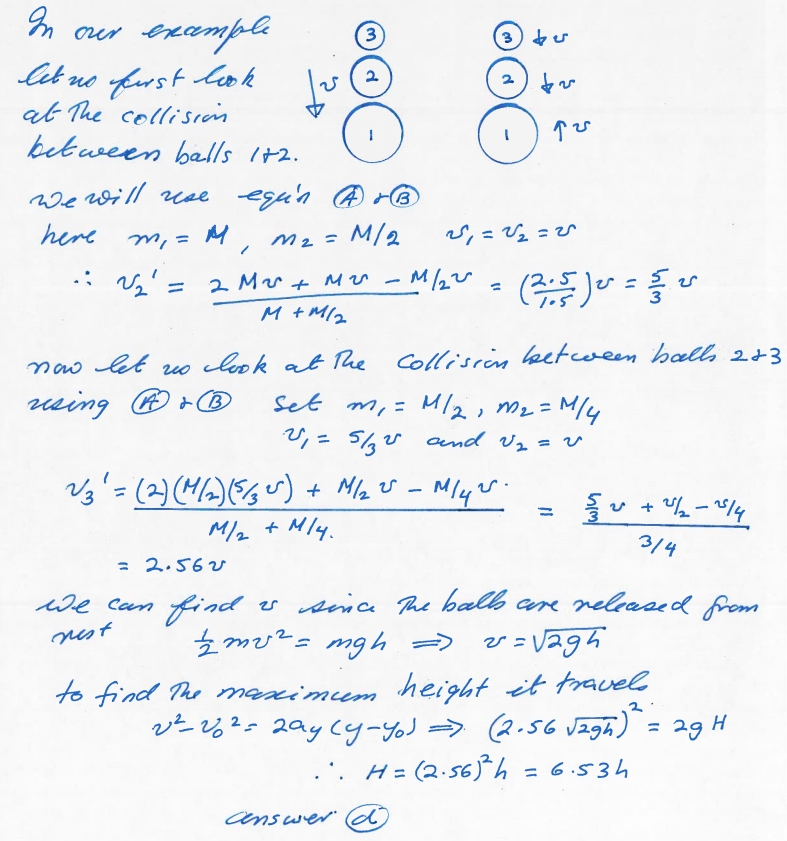 In our example
3
3 ↓ v
let us first look
↓ v
2
2 ↓ v
at the collision
1
1 ↑ v
between balls 1+2.
we will use equ'n Ⓐ & Ⓑ
here m₁ = M , m₂ = M/2 v₁ = v₂ = v
∴ v₂' = (2Mv + Mv - M/2 v) / (M + M/2) = (2.5/1.5) v = 5/3 v
now let us look at the collision between balls 2&3
using Ⓐ & Ⓑ set m₁ = M/2 , m₂ = M/4
v₁ = 5/3 v and v₂ = v
v₃' = ((2)(M/2)(5/3 v) + M/2 v - M/4 v) / (M/2 + M/4.) = (5/3 v + v/2 - v/4) / (3/4)
= 2.56 v
we can find v since the balls are released from
rest ½ mv² = mgh ⟹ v = √2gh
to find the maximum height it travels
v² - v₀² = 2ay (y-y₀) ⟹ (2.56 √2gh)² = 2g H
∴ H = (2.56)² h = 6.53h
answer ⓓ